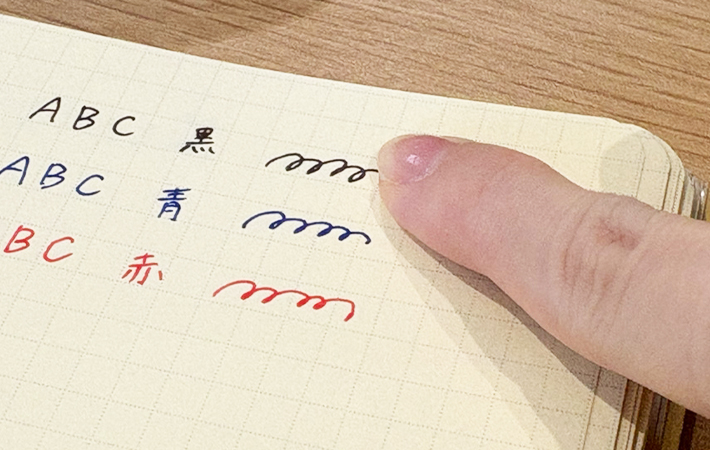 ABC 黒
ABC 青
BC 赤